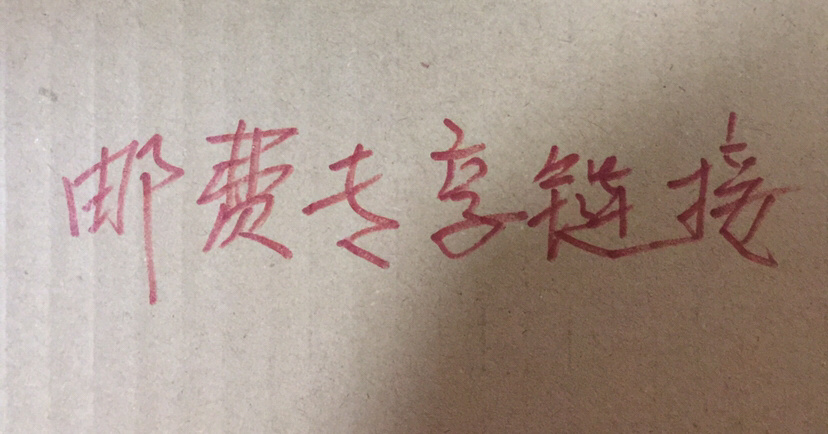 邮费专享链接